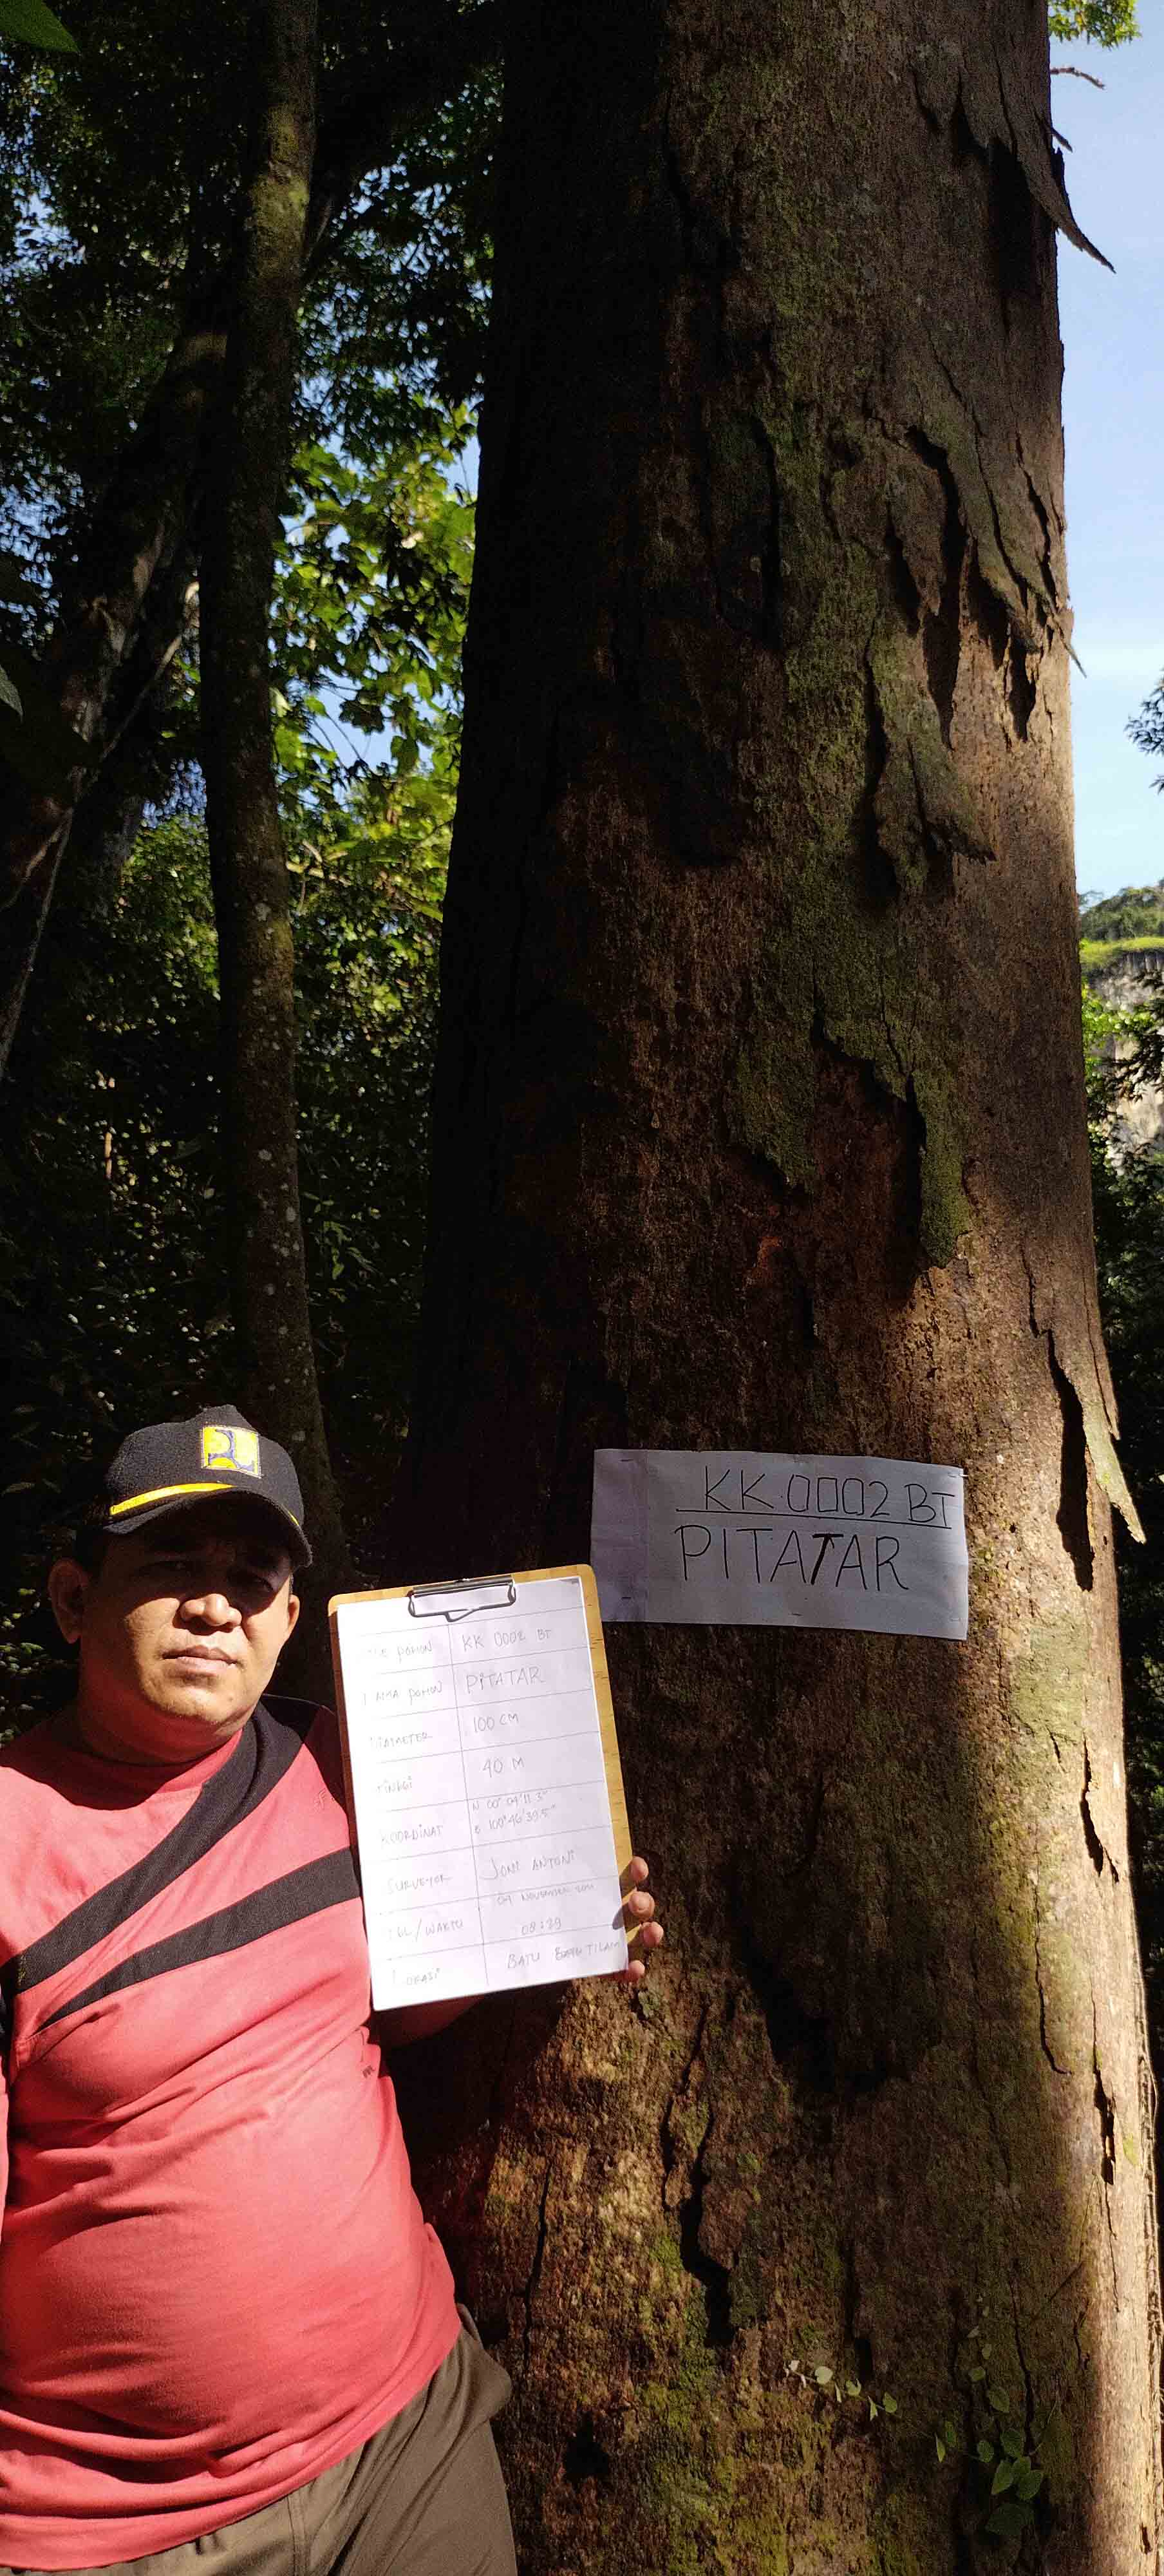 KK 0002 BT
PITATAR
POHON KK 0002 BT
POHON PITATAR
DIAMETER 100 CM
TINGGI 40 M
KOORDINAT N 00° 04' 11.3"
E 100° 46' 39.5"
SURVEYOR JONI ANTONI
TGL/WAKTU 04 NOVEMBER
LOKASI BATU TILAM